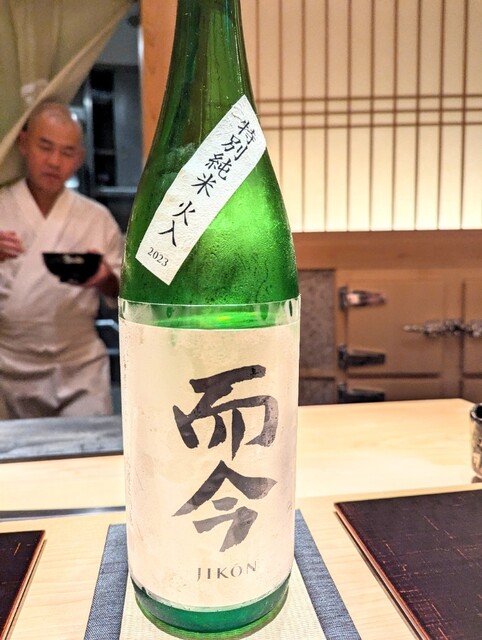 特別純米 火入
2023
而今
JIKON